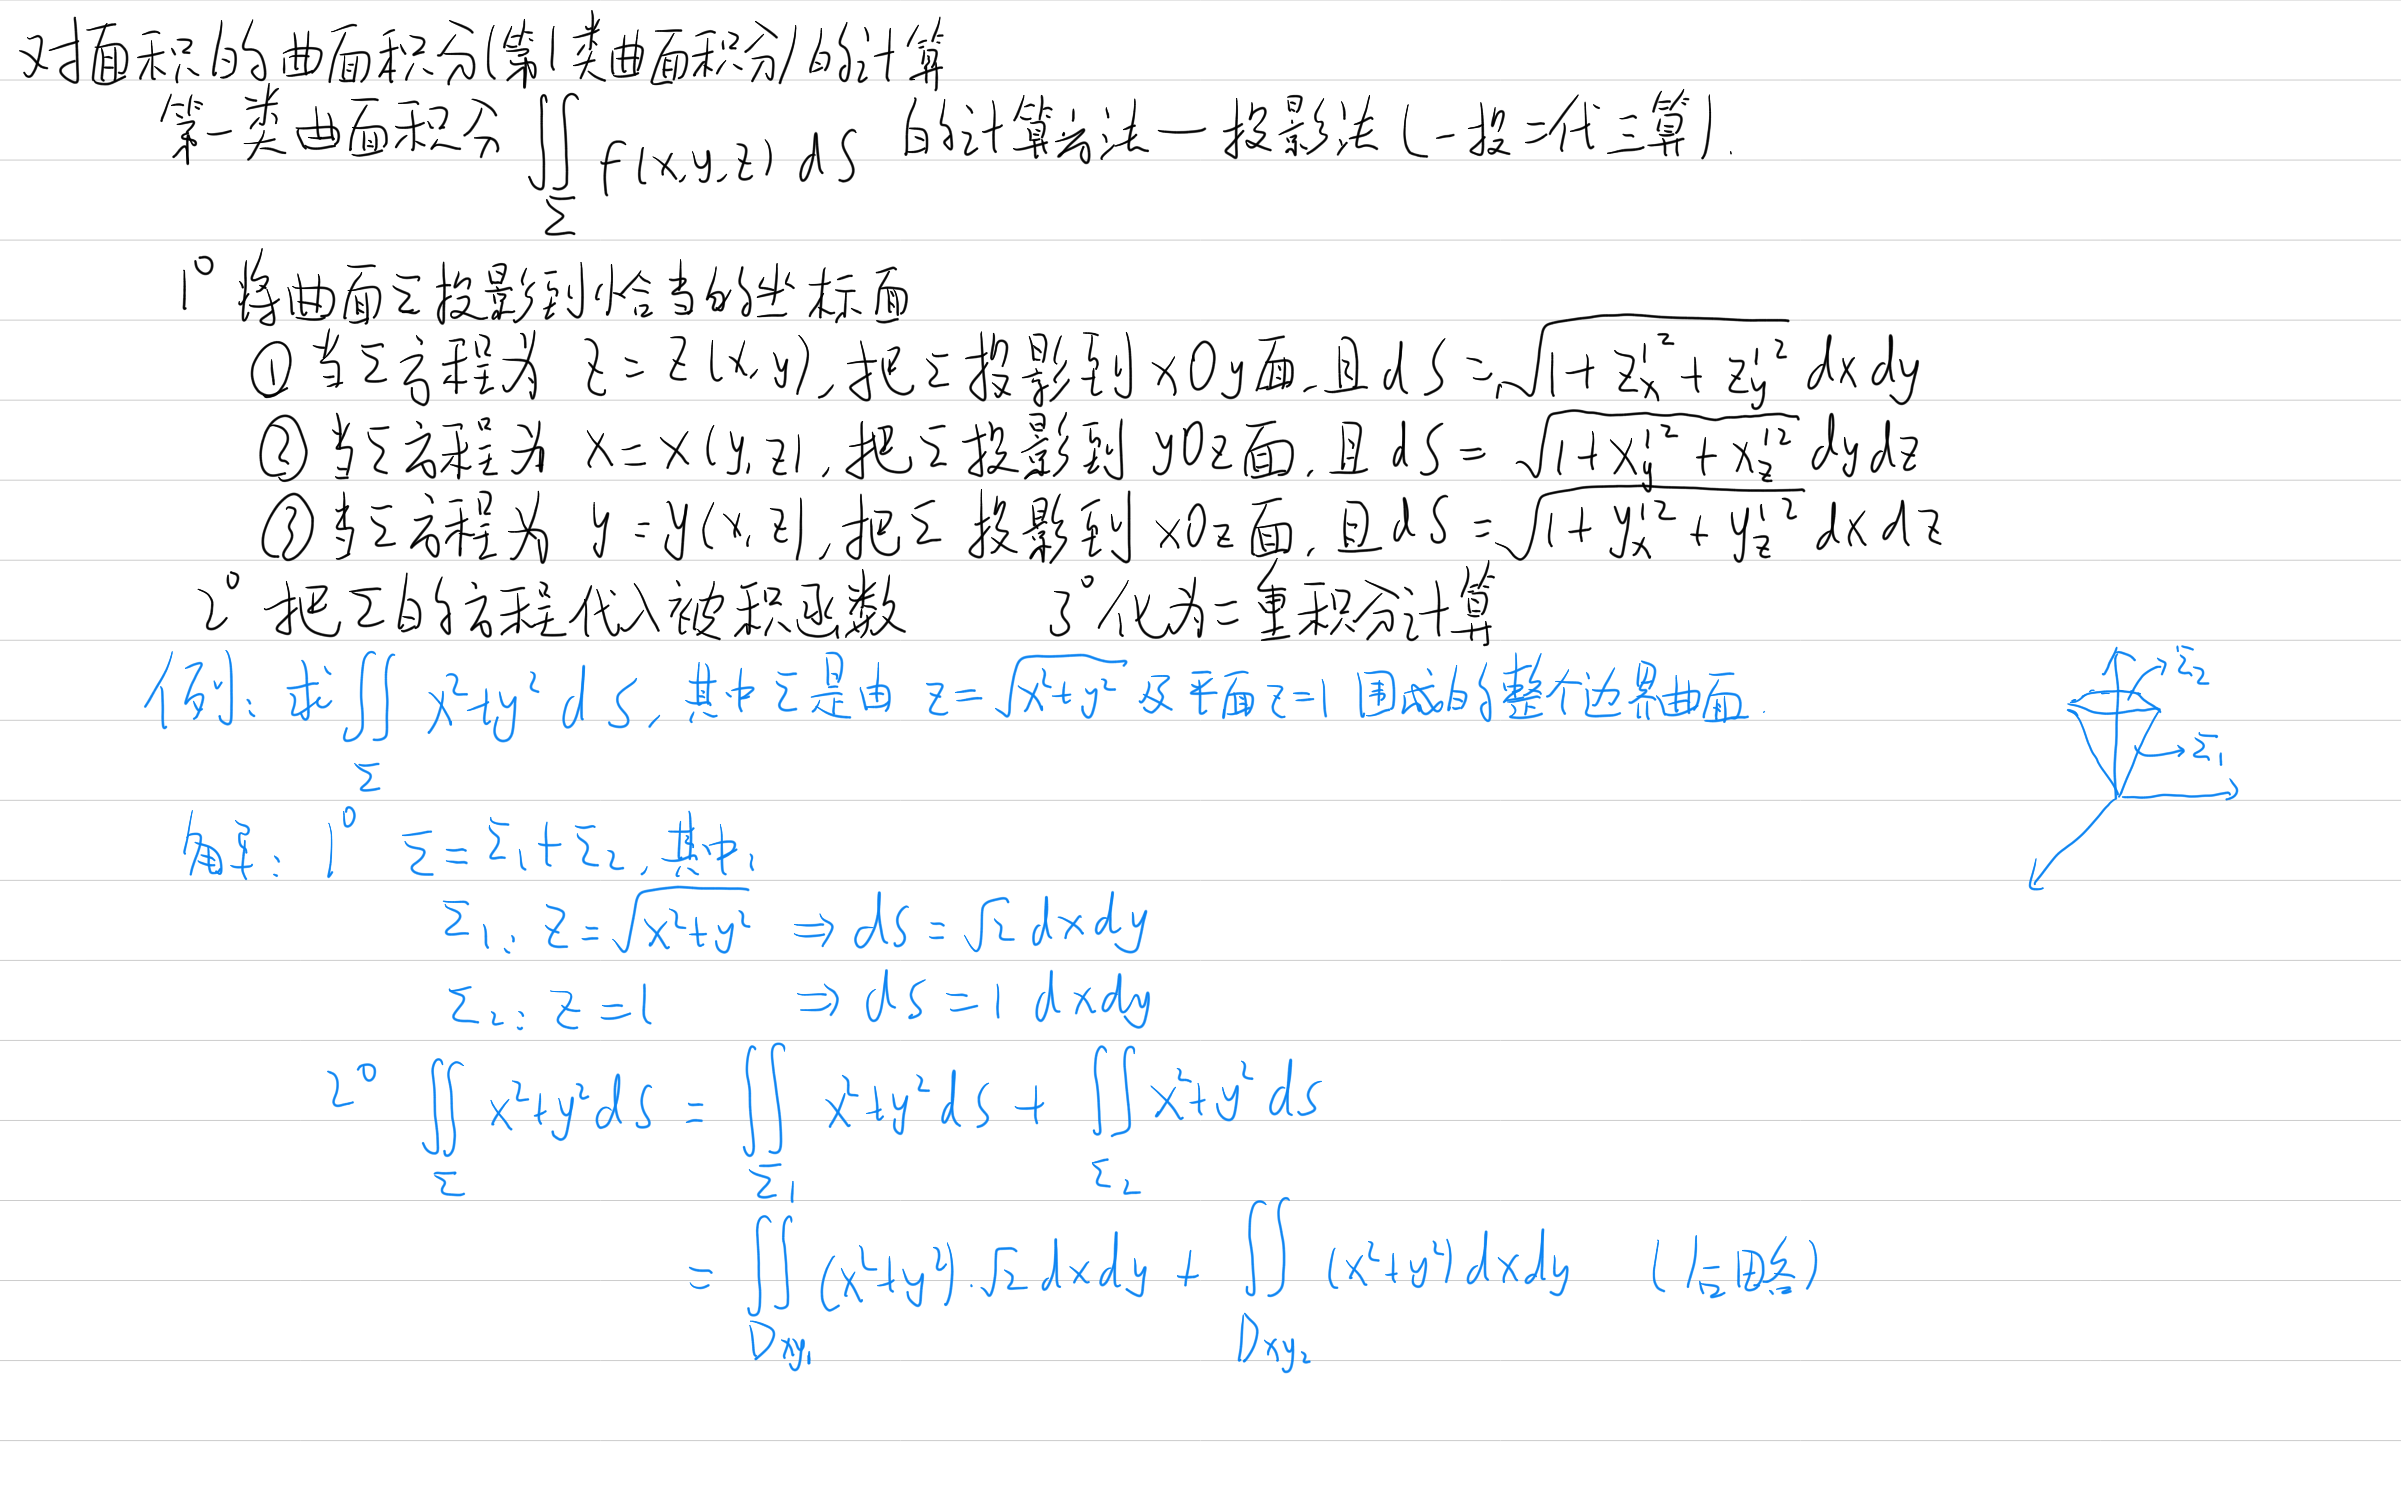 对面积的曲面积分(第1类曲面积分)的计算
第一类曲面积分 ∬_Σ f(x,y,z) dS 的计算方法——投影法 (一投二代三算).
1° 将曲面Σ投影到恰当的坐标面
① 当Σ方程为 z=z(x,y), 把Σ投影到xOy面, 且 dS=√(1+z'ₓ²+z'_y²) dxdy
② 当Σ方程为 x=x(y,z), 把Σ投影到yOz面, 且 dS=√(1+x'_y²+x'_z²) dydz
③ 当Σ方程为 y=y(x,z), 把Σ投影到xOz面, 且 dS=√(1+y'ₓ²+y'_z²) dxdz
2° 把Σ的方程代入被积函数 3° 化为二重积分计算
例: 求∬_Σ x²+y² dS, 其中Σ是由 z=√(x²+y²) 及平面z=1围成的整个边界曲面.
Σ₂
Σ₁
解: 1° Σ=Σ₁+Σ₂, 其中:
Σ₁: z=√(x²+y²) ⇒ dS=√2 dxdy
Σ₂: z=1 ⇒ dS=1 dxdy
2° ∬_Σ x²+y² dS = ∬_Σ₁ x²+y² dS + ∬_Σ₂ x²+y² dS
= ∬_Dxy₁ (x²+y²)·√2 dxdy + ∬_Dxy₂ (x²+y²) dxdy (后略)